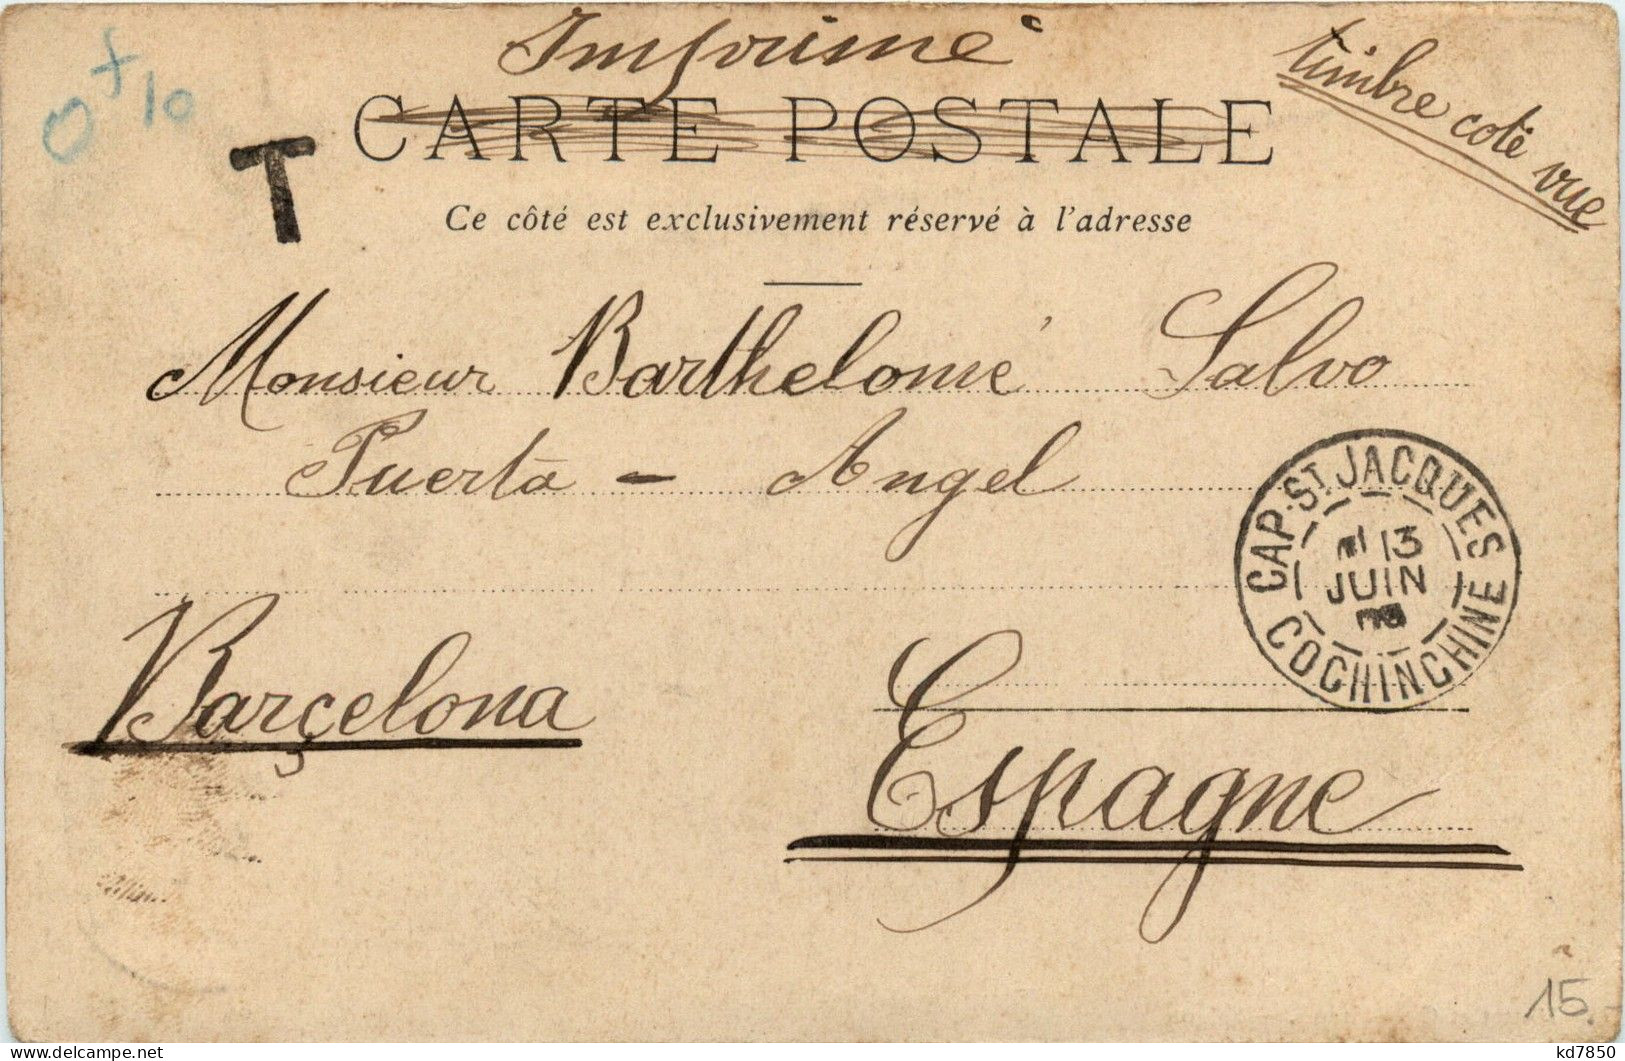 Imprimé
timbre coté vue
0f10
T
CARTE POSTALE
Ce côté est exclusivement réservé à l'adresse
Monsieur Barthelomé Salvo
Puerta - Angel
CAP. ST. JACQUES
13
JUIN
COCHINCHINE
Barçelona
Espagne
15.-
delcampe.net
kd7850